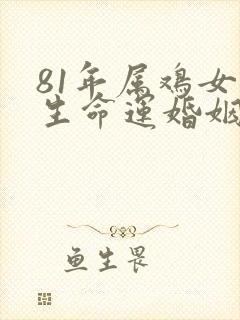 81年属鸡女
生命运婚姻
鱼生畏